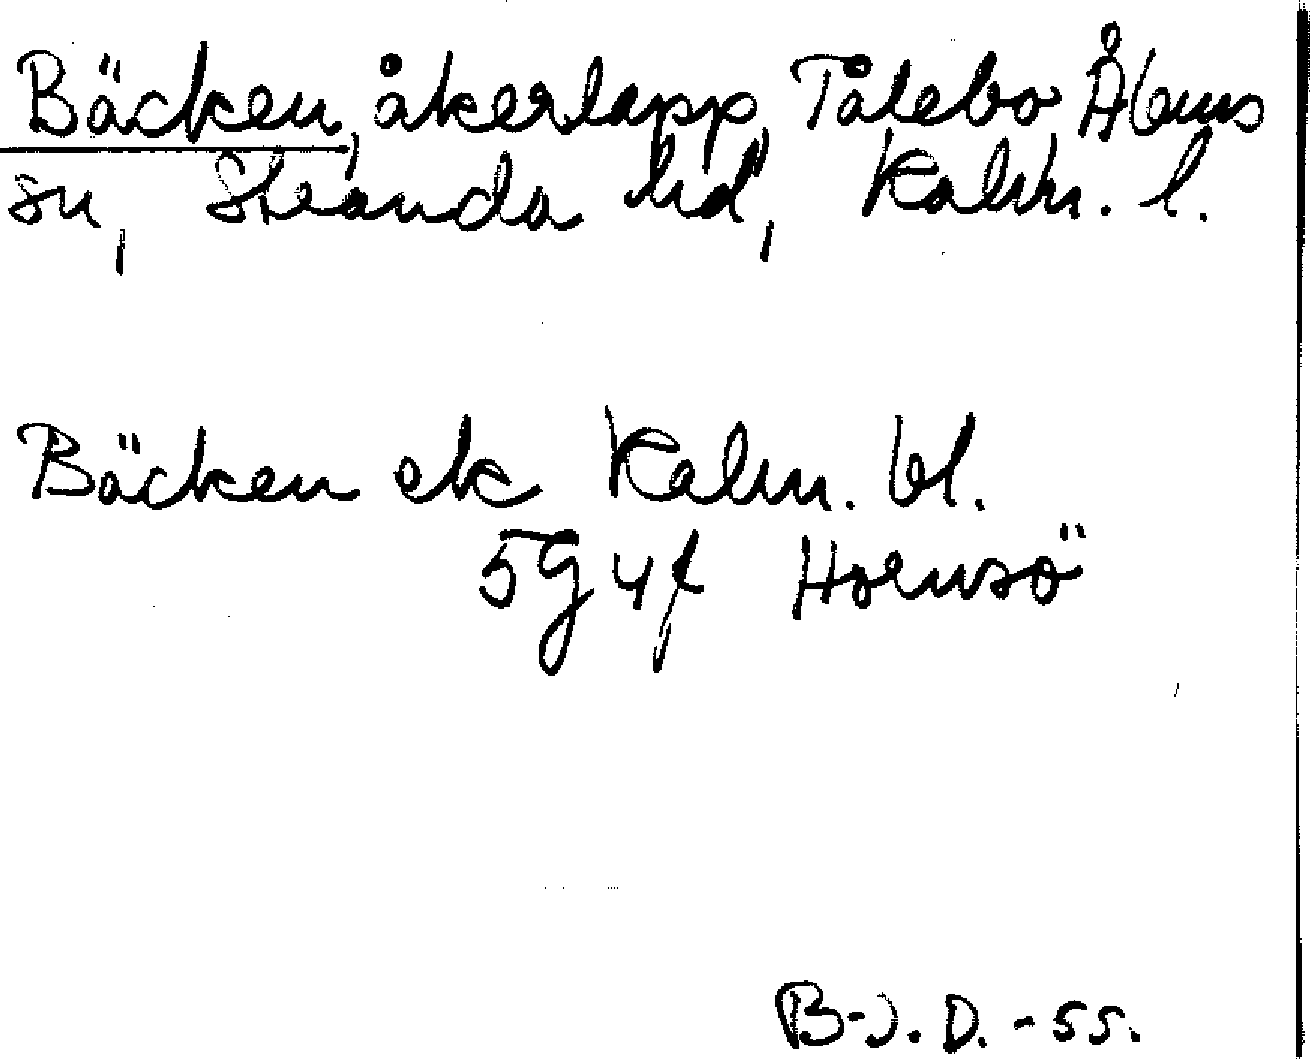 Bäcken, åkerlapp, Tålebo Ålems
sn, Stranda hd, Kalm. l.
Bäcken ek Kalm. bl.
5g 4f Hornsö
B-J. D. -55.